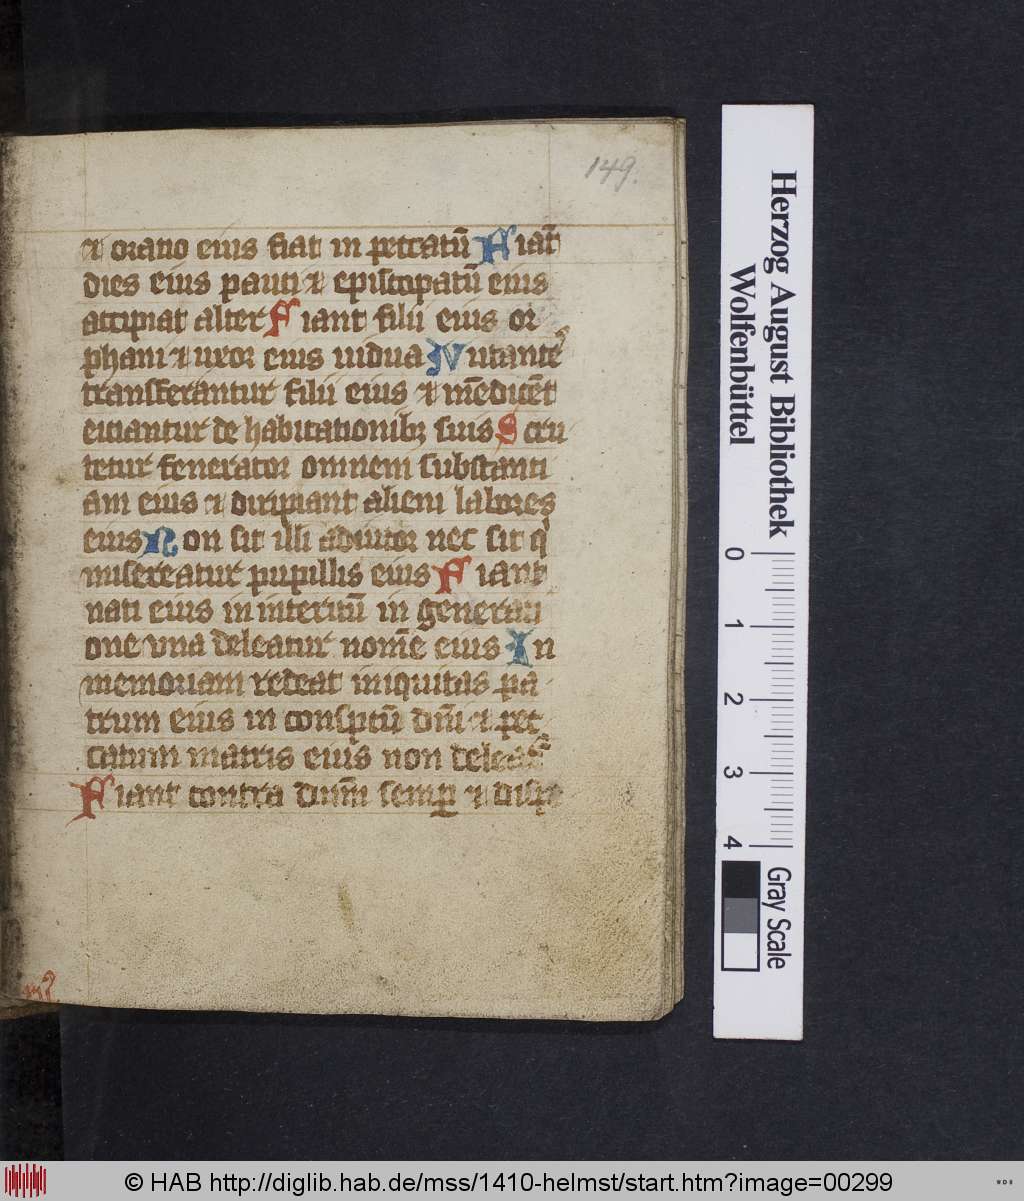 149.
et oratio eius fiat in peccatū Fiāt
dies eius pauci et episcopatū eius
accipiat alter Fiant filii eius or
phani et uxor eius uidua Nutantes
transferantur filii eius et mēdicēt
eiciantur de habitationibꝫ suis Scru
tetur fenerator omnem substanti
am eius et diripiant alieni labores
eius Non sit illi adiutor nec sit qͥ
misereatur pupillis eius Fiant
nati eius in interitū in generati
one una deleatur nomē eius In
memoriam redeat iniquitas pa
trum eius in conspectū dn̄i et pec
catum matris eius non deleat᷑
Fiant contra dn̄m semꝑ et disꝑe
Herzog August Bibliothek
Wolfenbüttel
0 1 2 3 4
Gray Scale
© HAB http://diglib.hab.de/mss/1410-helmst/start.htm?image=00299